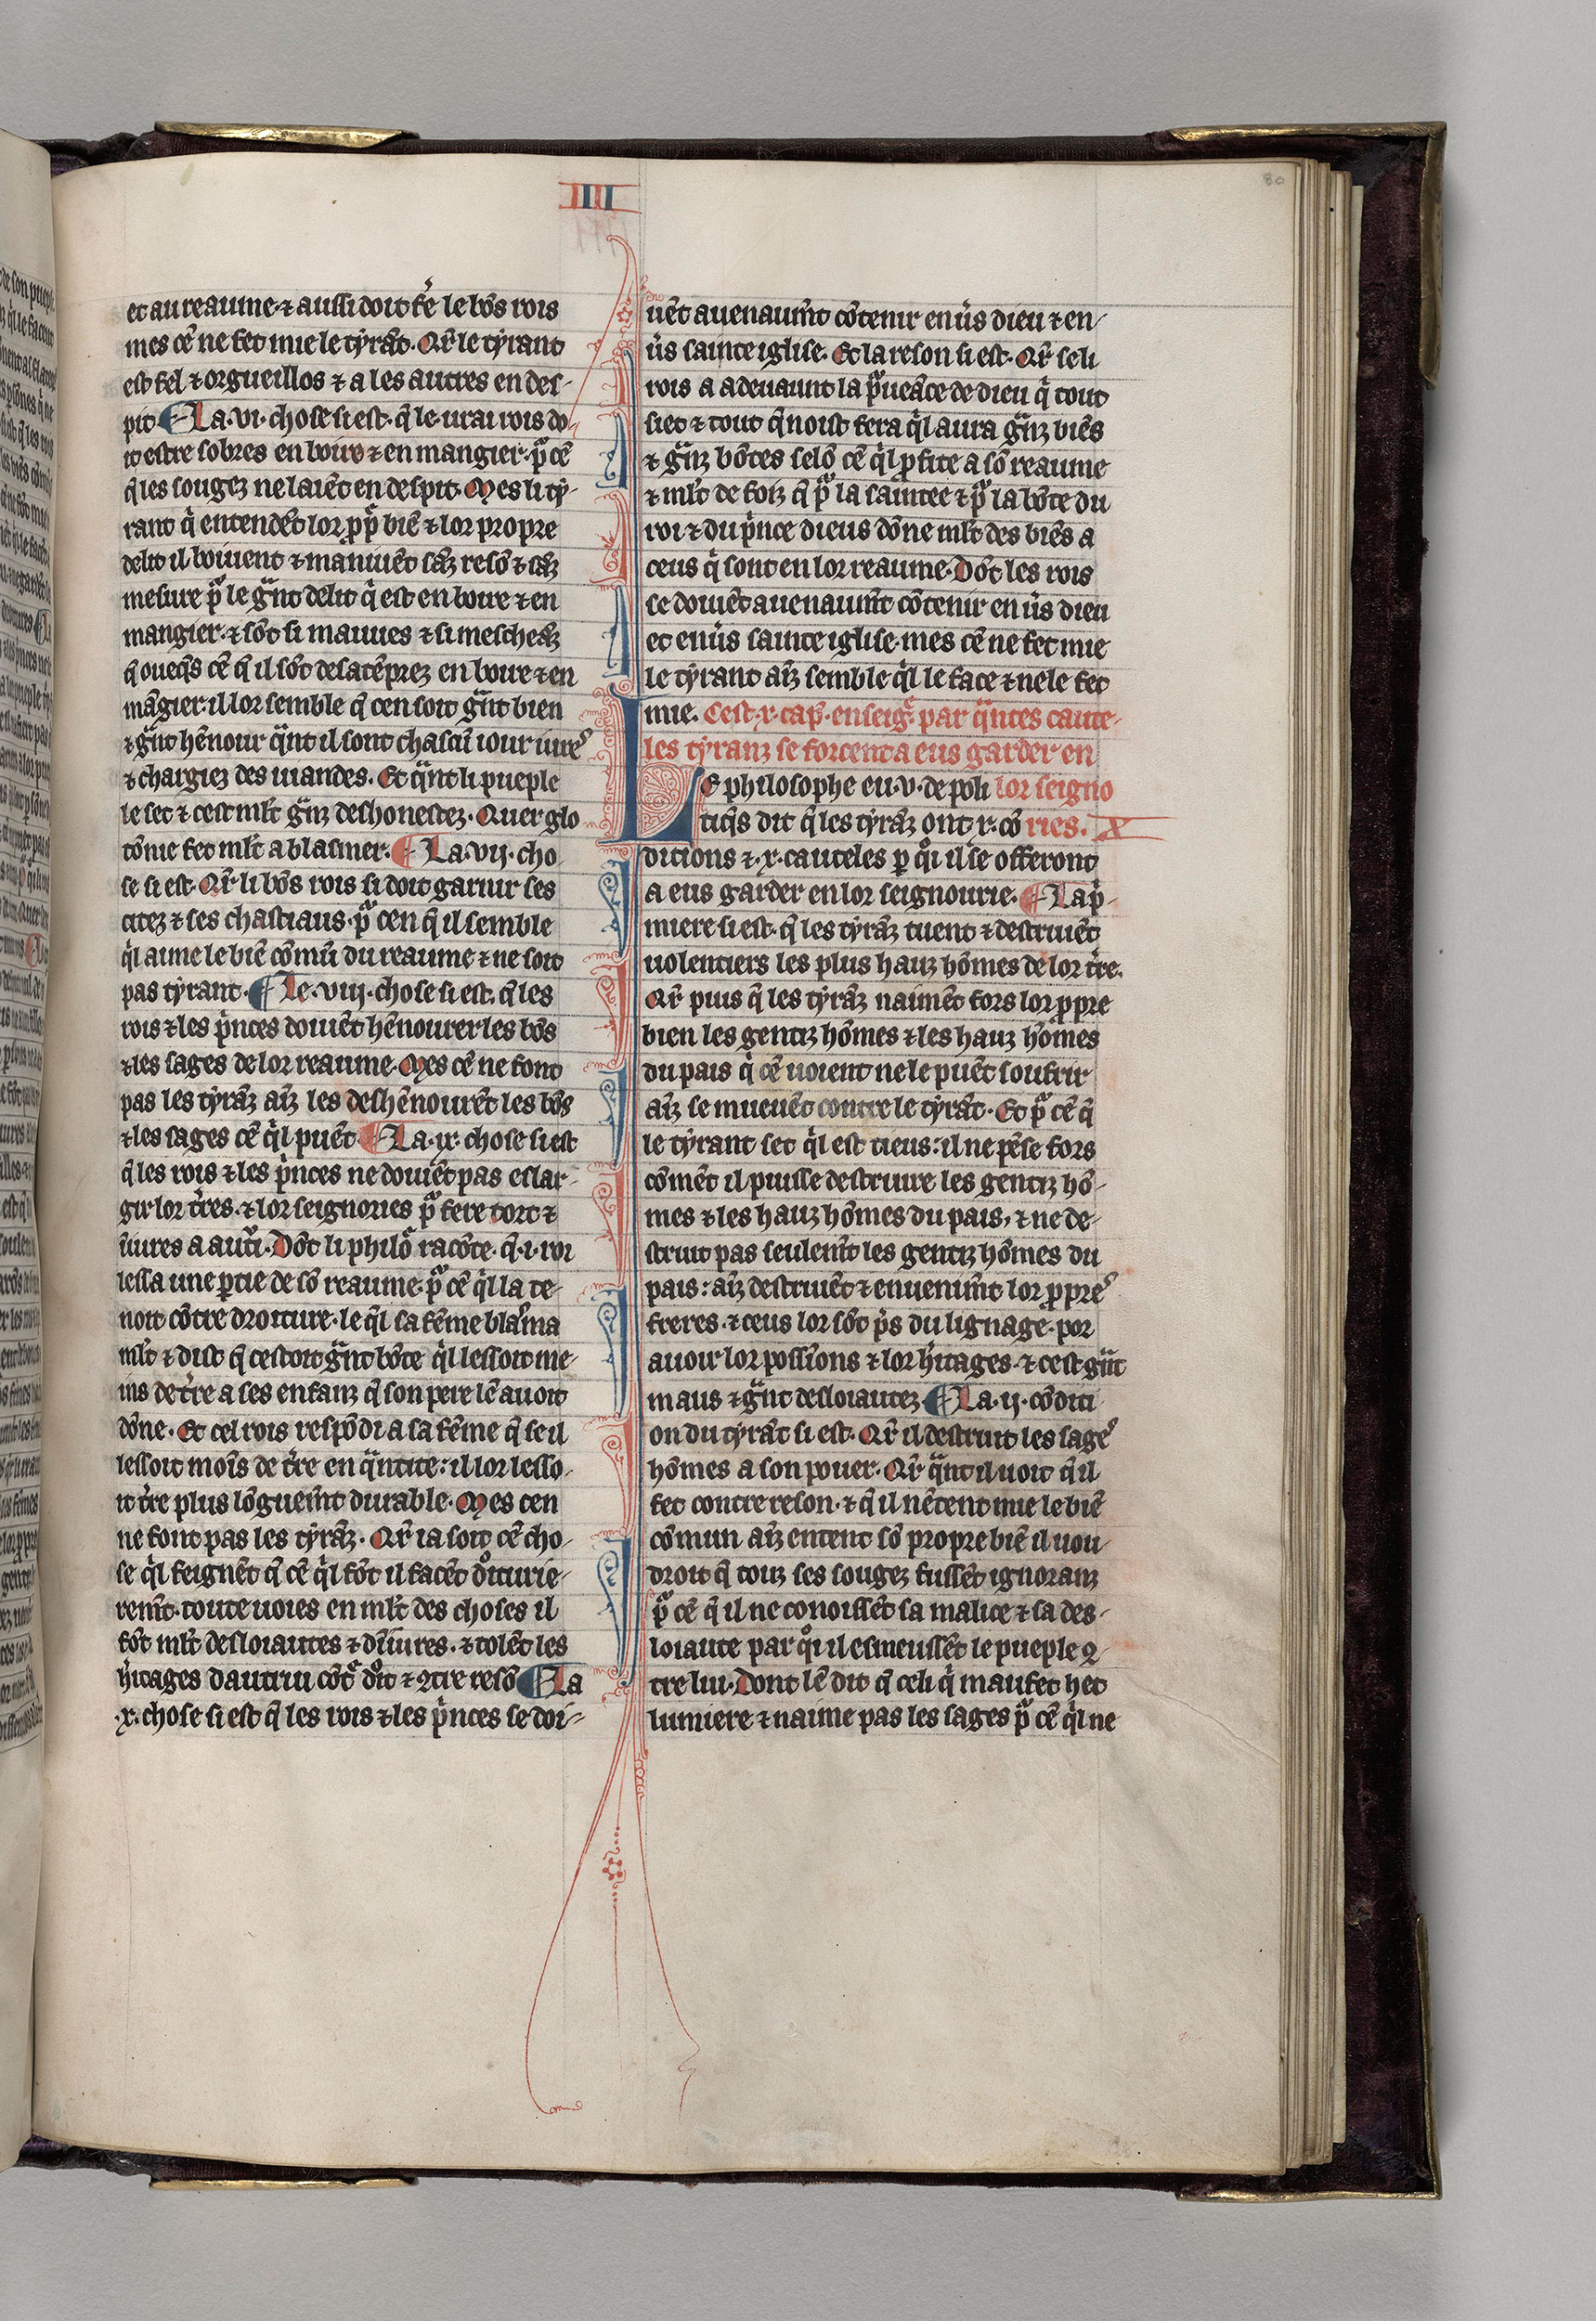 80
IIII
et au reaume· ⁊ aussi doit fẻ le bõs rois
mes cẽ ne fet mie le tyrãt. Qr̃ le tyrant
est fel ⁊ orgueillos ⁊ a les autres en des-
pit ¶ La ·vi· chose si est· q̃ le urai rois do-
it estre sobres en boire ⁊ en mangier· pͣ cẽ
q̃ les sougez ne laiẽt en despit· Mes li ty-
rant qͥ entendẽt lor ꝓpͥ biẽ ⁊ lor propre
delit il boiuent ⁊ maniuẽt sãz resõ ⁊ sãz
mesure pͣ le gͣnt delit qͥ est en boire ⁊ en
mangier· ⁊ sõt si mauues ⁊ si mescheãz
q̃ oueq̃s cẽ q̃ il sõt desatẽprez en boire ⁊ en
mãgier· il lor semble q̃ cen soit gͣnt bien
⁊ gͣnt hẽnour qͣnt il sont chascũ iour iureˢ
⁊ chargiez des uiandes. Et qͣnt li pueple
le set ⁊ cest ml̃t gͣnz deshonestez· Quer glo
tõnie fet ml̃t a blasmer. ¶ La ·vij· cho
se si est· Qr̃ li bõs rois si doit garnir ses
citez ⁊ ses chastiaus· pͣ cen q̃ il semble
qͥl aime le biẽ cõmũ du reaume ⁊ ne soit
pas tyrant· ¶ Le ·viij· chose si est· q̃ les
rois ⁊ les pͥnces doiuẽt hẽnourer les bõs
⁊ les sages de lor reaume· Mes cẽ ne font
pas les tyrãz aĩz les deshẽnourẽt les bõs
⁊ les sages cẽ qͥl puẽt ¶ La ·ix· chose si est
q̃ les rois ⁊ les pͥnces ne doiuẽt pas eslar-
gir lor t̃res· ⁊ lor seignories pͣ fere tort ⁊
iniures a autͥ· Dõt li philoͣ racõte· q̃ ·i· roi
lessa une ꝑtie de sõ reaume· pͣ cẽ qͥl la te-
noit cõtre droiture· le q̃l sa fẽme blasma
ml̃t ⁊ dist q̃ cestoit gͣnt hõte qͥl lessoit me-
ins de t̃re a ses enfanz q̃ son pere lẽ auoit
dõne· Et cel rois respõdi a sa fẽme q̃ se il
lessoit moĩs de t̃re en qͣntite: il lor lesso-
it t̃re plus lõguem̃t durable· Mes cen
ne font pas les tyrãz· Qr̃ ia soit cẽ cho-
se qͥl feignẽt q̃ cẽ qͥl fõt il facẽt dͦiturie-
rem̃t· toute uoies en ml̃t des choses il
fõt ml̃t desloiautes ⁊ dĩiures· ⁊ tolẽt les
h̃itages dautrui cõtͤ dͦit ⁊ ꝯtre resõ ¶ La
·x· chose si est q̃ les rois ⁊ les pͥnces se doi-
uẽt auenaum̃t cõtenir en ũs dieu ⁊ en-
ũs sainte iglise. Et la reson si est· Qr̃ se li
rois a adeuaunt la pͣueãce de dieu qͥ tout
siet ⁊ tout q̃noist fera qͥl aura gͣnz biẽs
⁊ gͣnz bõtes selõ cẽ qͥl ꝓfite a sõ reaume
⁊ ml̃t de foiz q̃ pͣ la saintee ⁊ pͣ la bõte du
roi ⁊ du pͥnce dieus dõne ml̃t des biẽs a
ceus qͥ sont en lor reaume· Dõt les rois
se doiuẽt auenaum̃t cõtenir en ũs dieu
et en ũs sainte iglise· mes cẽ ne fet mie
le tyrant aĩz semble qͥl le face ⁊ nele fet
mie. Cest ·x· cap̃· enseigͤ par qͣntes caute-
les tyranz se forcent a eus garder en
LE philosophe eu ·v· de poli lor seigno
tiq̃s dit q̃ les tyrãz ont ·x· cõ ries. X
dicions ⁊ ·x· cauteles ꝑ qͦi il se offeront
a eus garder en lor seignourie. ¶ La pͥ-
miere si est· q̃ les tyrãz tuent ⁊ destruiẽt
uolentiers les plus hauz hõmes de lor t̃re·
Qr̃ puis q̃ les tyrãz naimẽt fors lor ꝓpre
bien les gentiz hõmes ⁊ les hauz hõmes
du pais qͥ cẽ uoient ne le puẽt soufrir
aĩz se mueuẽt contre le tyrãt· Et pͣ cẽ q̃
le tyrant set qͥl est tieus: il ne pẽse fors
cõmẽt il puisse destruire les gentiz hõ-
mes ⁊ les hauz hõmes du pais, ⁊ ne de-
struit pas seulem̃t les gentiz hõmes du
pais: aĩz destruiẽt ⁊ enuenim̃t lor ꝓpreˢ
freres· ⁊ ceus lor sõt pͥs du lignage· por
auoir lor possiõns ⁊ lor h̃itages· ⁊ cest gͣnt
maus ⁊ gͣnt desloiautez ¶ La ·ij· cõditi
on du tyrãt si est· Qr̃ il destruit les sageˢ
hõmes a son pouer· Qr̃ qͣnt il uoit q̃ il
fet contre reson· ⁊ q̃ il nẽtent mie le biẽ
cõmun aĩz entent sõ propre biẽ il uou-
droit q̃ touz ses sougez fussẽt ignoranz
pͣ cẽ q̃ il ne conoissẽt sa malice ⁊ sa des-
loiaute par qͦi il esmeussẽt le pueple ꝯ-
tre lui· Dont lẽ dit q̃ celi qͥ maufet het
lumiere ⁊ naime pas les sages pͣ cẽ qͥl ne